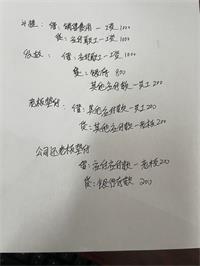 计提: 借: 销售费用 — 工资 1000
贷: 应付职工 — 工资 1000
发放: 借: 应付职工 — 工资 1000
贷: 银行 800
其他应付款 — 员工 200
老板垫付: 借: 其他应付款 — 员工 200
贷: 其他应付款 — 老板 200
公司还老板垫付
借: 应付款 — 老板 200
贷: 银行存款 200